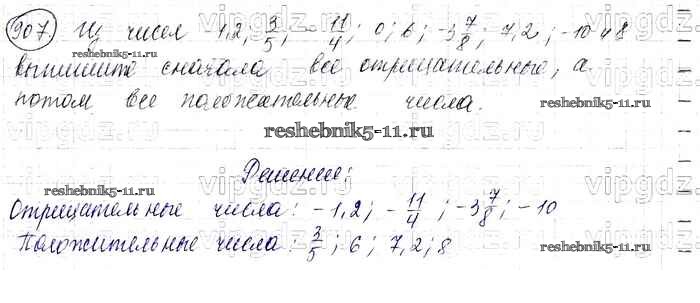 907. Из чисел 1,2; 3/5; -11/4; 0; 6; -3 7/8; 7,2; -10 и 8
выпишите сначала все отрицательные, а
потом все положительные числа.
reshebnik5-11.ru
Решение:
Отрицательные числа: -1,2; -11/4; -3 7/8; -10
Положительные числа: 3/5; 6; 7,2; 8
reshebnik5-11.ru
reshebnik5-11.ru
reshebnik5-11.ru
vipgdz
vipgdz.com
vipgdz
vipgdz.com